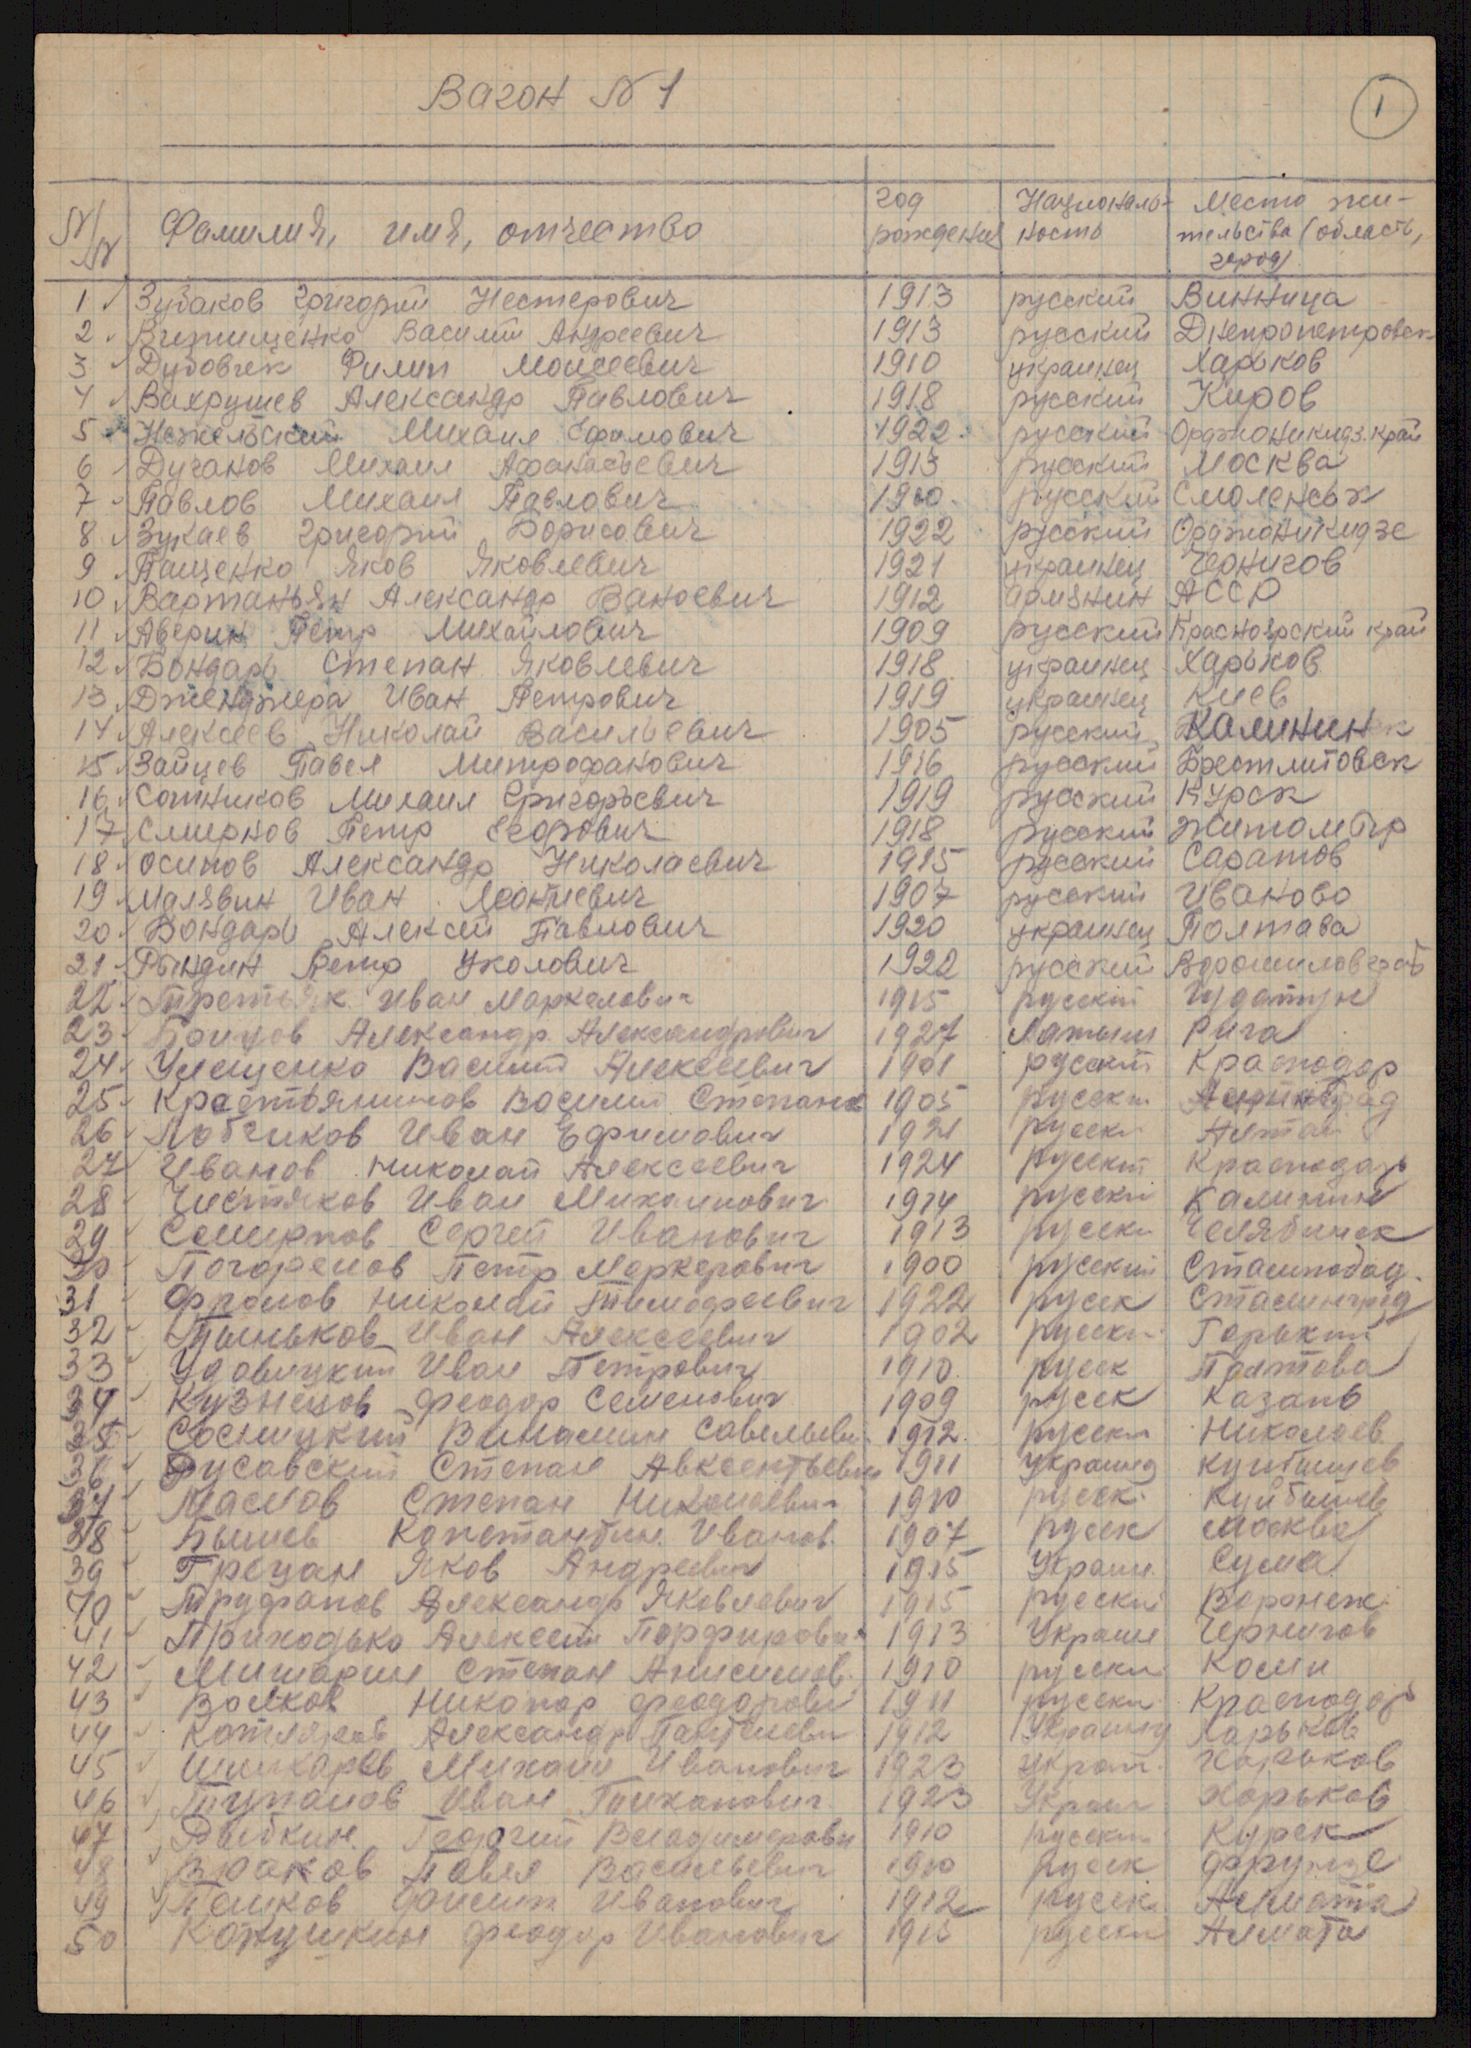 Вагон № 1
1
№/№ Фамилия, имя, отчество год рождения Националь-ность Место жи-тельства (область, город)
1 Зубаков Григорий Нестерович 1913 русский Винница
2 Василий Андреевич 1913 русский Днепропетровск
3 Дубовчек Филип Моисеевич 1910 украинец Харьков
4 Вахрушев Александр Павлович 1918 русский Киров
5 Михаил Ефимович 1922 русский Орджоникидз. край
6 Дуганов Михаил Афанасьевич 1913 русский Москва
7 Павлов Михаил Павлович 1900 русский Смоленськ
8 Зукаев Григорий Борисович 1922 русский Орджоникидзе
9 Пащенко Яков Яковлевич 1921 украинец Чернигов
10 Вартаньян Александр Ваноевич 1912 армянин АССР
11 Аверин Петр Михайлович 1909 русский Красноярский край
12 Бондарь Степан Яковлевич 1918 украинец Харьков
13 Дженджера Иван Петрович 1919 украинец Киев
14 Алексеев Николай Васильевич 1905 русский Калинин
15 Зайцев Павел Митрофанович 1916 русский Брестлитовск
16 Сотников Михаил Григорьевич 1919 русский Курск
17 Смирнов Петр Егорович 1918 русский Житомир
18 Осипов Александр Николаевич 1915 русский Саратов
19 Малявин Иван Леонтиевич 1907 русский Иваново
20 Бондарь Алексей Павлович 1920 украинец Полтава
21 Рындин Петр Уколович 1922 русский Ворошиловград
22 Третьяк Иван Маркелович 1915 русский Гудатун
23 Александр Александрович 1927 Латыш Рига
24 Улещенко Василий Алексеевич 1901 русский Краснодар
25 Крестьянинов Василий Степанов 1905 русски
26 Лобчиков Иван Ефимович 1921 русски Алтай
27 Иванов Николай Алексеевич 1924 русский Краснодар
28 Чистяков Иван Михаилович 1914 русски Калинин
29 Смирнов Сергей Иванович 1913 русски Челябинск
30 Погорелов Петр Маркерович 1900 русский Сталинобад.
31 Фролов Николай Тимофеевич 1922 русск Сталинград
32 Иван Алексеевич 1902 русски Горький
33 Удовицкий Иван Петрович 1910 русск Полтова
34 Кузнецов Феодор Семенович 1909 русск Казань
35 Сосницкий Винамин Савельеви 1912 русски Николаев
36 Русавский Степан Авксентьевич 1911 Украинц Куйбышев
37 Маслов Степан Николаевич 1910 русск Куйбышев
38 Бышев Константин Иванов. 1907 русск Москва
39 Грецан Яков Андреевич 1915 Украин Сума
40 Труфанов Александр Яковлевич 1915 русский Воронеж
41 Приходько Алексей Порфирови 1913 Украин Чернигов
42 Мишарин Степан Анисимов. 1910 русски Коми
43 Волков Никонор Феодорови 1911 русски Краснодар
44 Котляров Александр Пантелеви 1912 Украинц Харьков
45 Шликарев Михаил Иванович 1923 украи. Харьков
46 Тупалов Иван Тиханович 1923 Украин Харьков
47 Рыбкин Георгий Владимирови 1910 русский Курск
48 Павел Васильевич 1910 русск Фрунзе
49 Иванович 1912 русск Алмата
50 Кокушкин Феодор Иванович 1915 русски Алмата